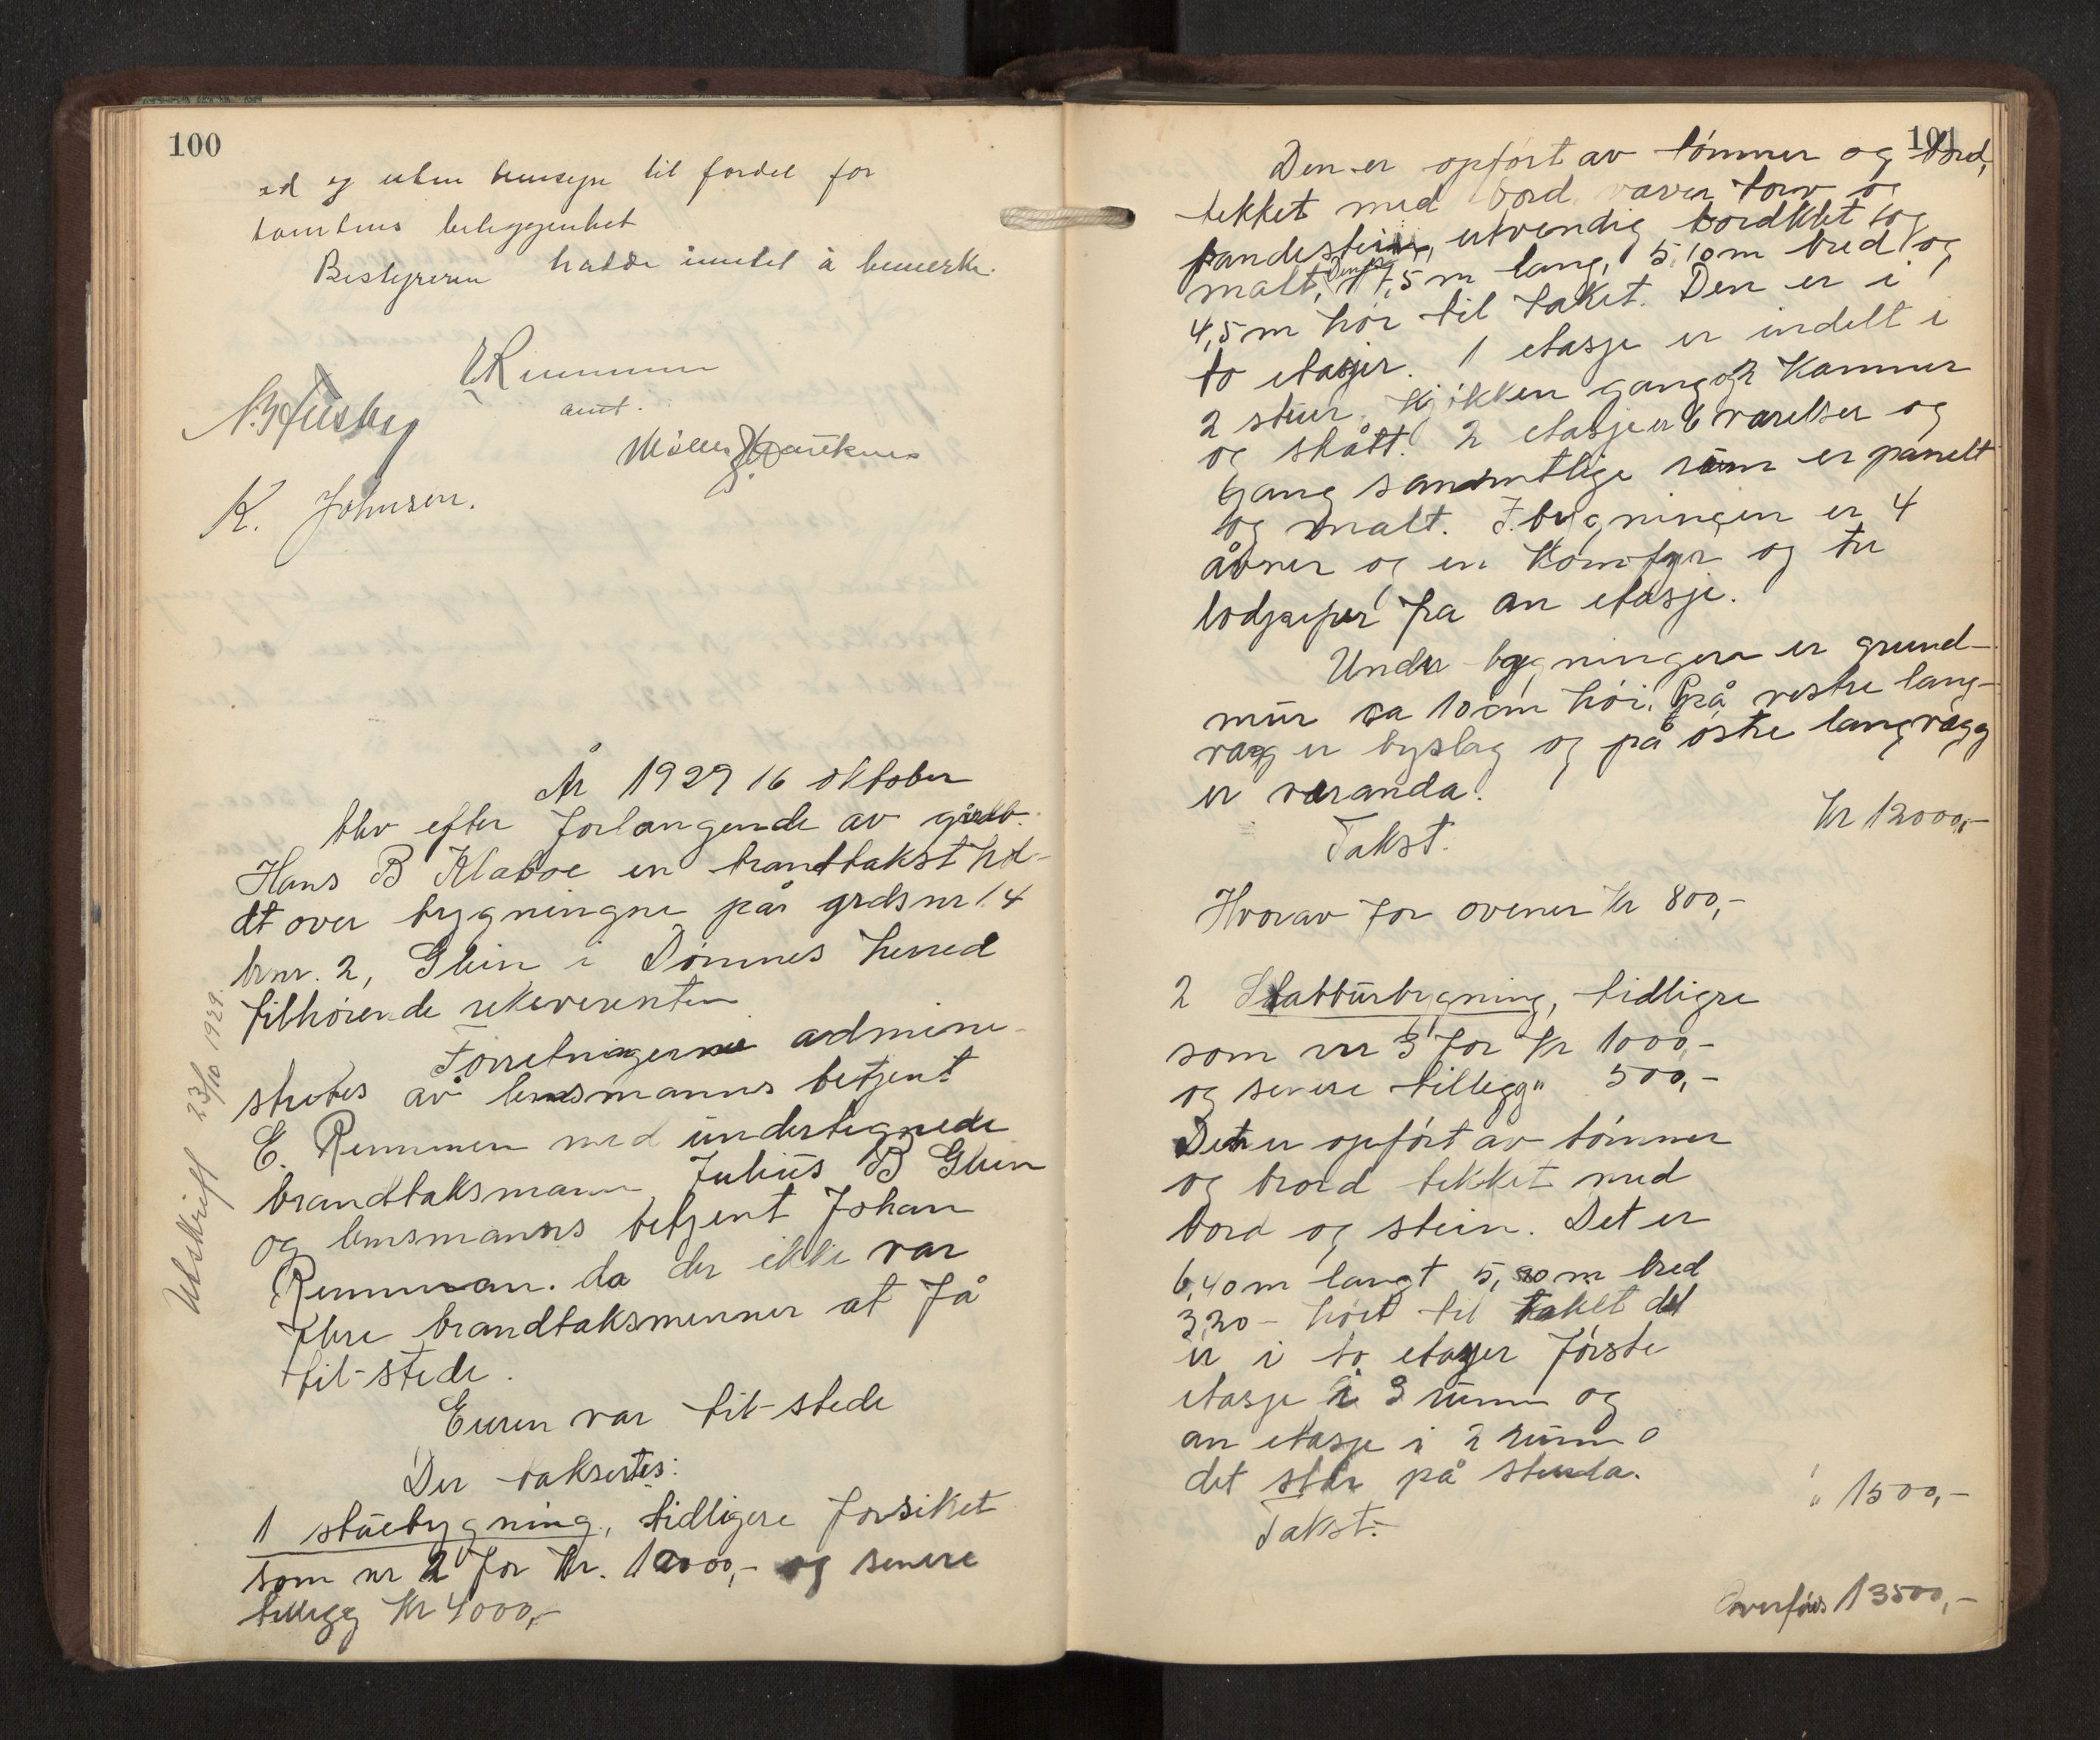 100
ed og uten hensyn til fordel for
tomtens beliggenhet
Bestyreren hadde inntet å bemerke.
E Remmen
aut.
N. Husby
K. Johnsen.
År 1929 16 oktober
blev efter forlangende av gårdb.
Hans B Klaboe en brandtakst hol-
dt over bygningne på grdsnr 14
brnr. 2, Glein i Dönnes herred
tilhörende rekverenten
Forretningerne admini-
stretes av lensmanns betjent
E. Remmen med undertegnede
brandtaksmann Julius B Glein
og lensmanns betjent Johan
Remman. da der ikke var
flere brandtaksmenner at få
til-stede.
Eieren var til-stede
Der taksertes:
1 stuebygning, tidligere forsiket
som nr 2 for Kr. 10000,- og senere
tillegg Kr 4000,-
Utskrift 23/10 1929.
101
Den er opfört av tömmer og bord,
tekket med bord, never torv og
pandestein, utvendig bordklet og
malt, Den er 17,5 m lang, 5,10 m bred og
4,5 m höi til taket. Den er i
to etasjer. 1 etasje er indelt i
2 stuer, kjökken gang og 2 kammer
og skått. 2 etasje er 6 varelser og
gang samtlige rum er panelt
og malt. I bygningen er 4
åvner og en komfyr og tre
lodpiper fra an etasje.
Under bygningen er grund-
mur ca 10 cm höi. På vestre lang-
vegg er byslag og på östre langvegg
er veranda.
Takst.
Kr 12000,-
Hvorav for ovener Kr 800,-
2 Stabbursbygning, tidligre
som nr 3 for Kr 1000,-
og senere tillegg " 500,-
Det er opfört av tömmer
og bord tekket med
bord og stein. Det er
6,40 m langt 5, m bred
3,20 - höit til taket det
er i to etasjer förste
etasje i 3 rumm og
an etasje i 2 rumm o
det står på stenda.
Takst.-
" 1500,-
Overföres 13500,-